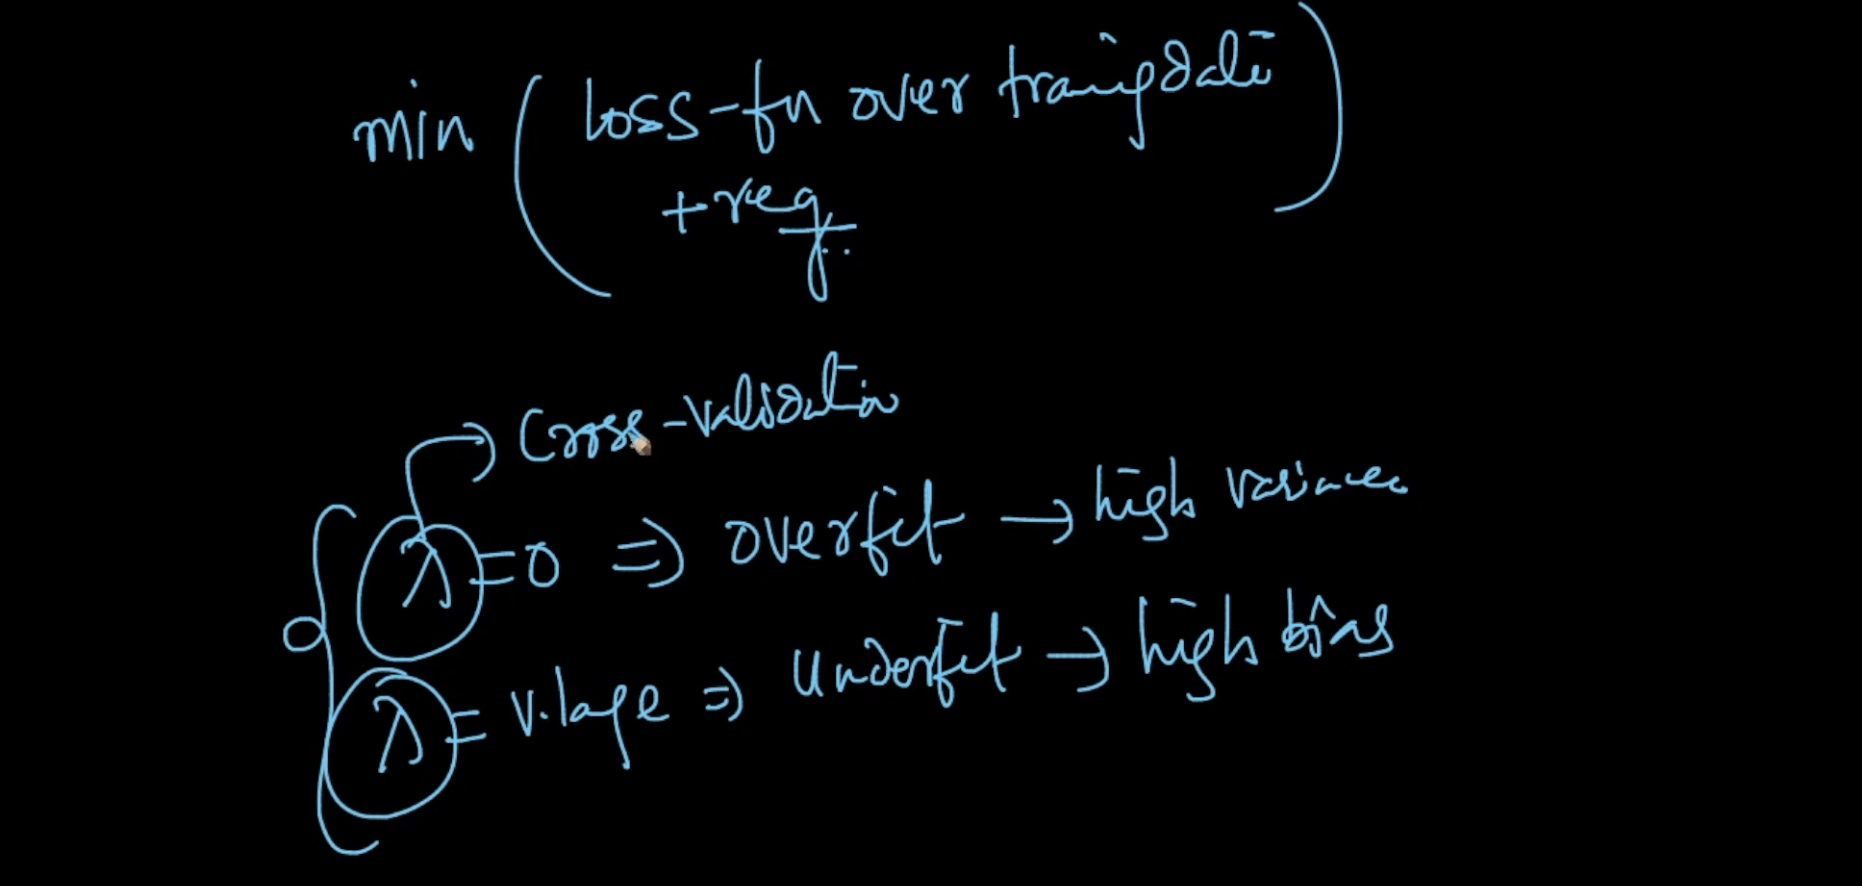 min ( loss-fn over traingdata )
+ reg
→ Cross-validation
λ=0 ⇒ overfit → high variance
λ= v.lage ⇒ underfit → high bias